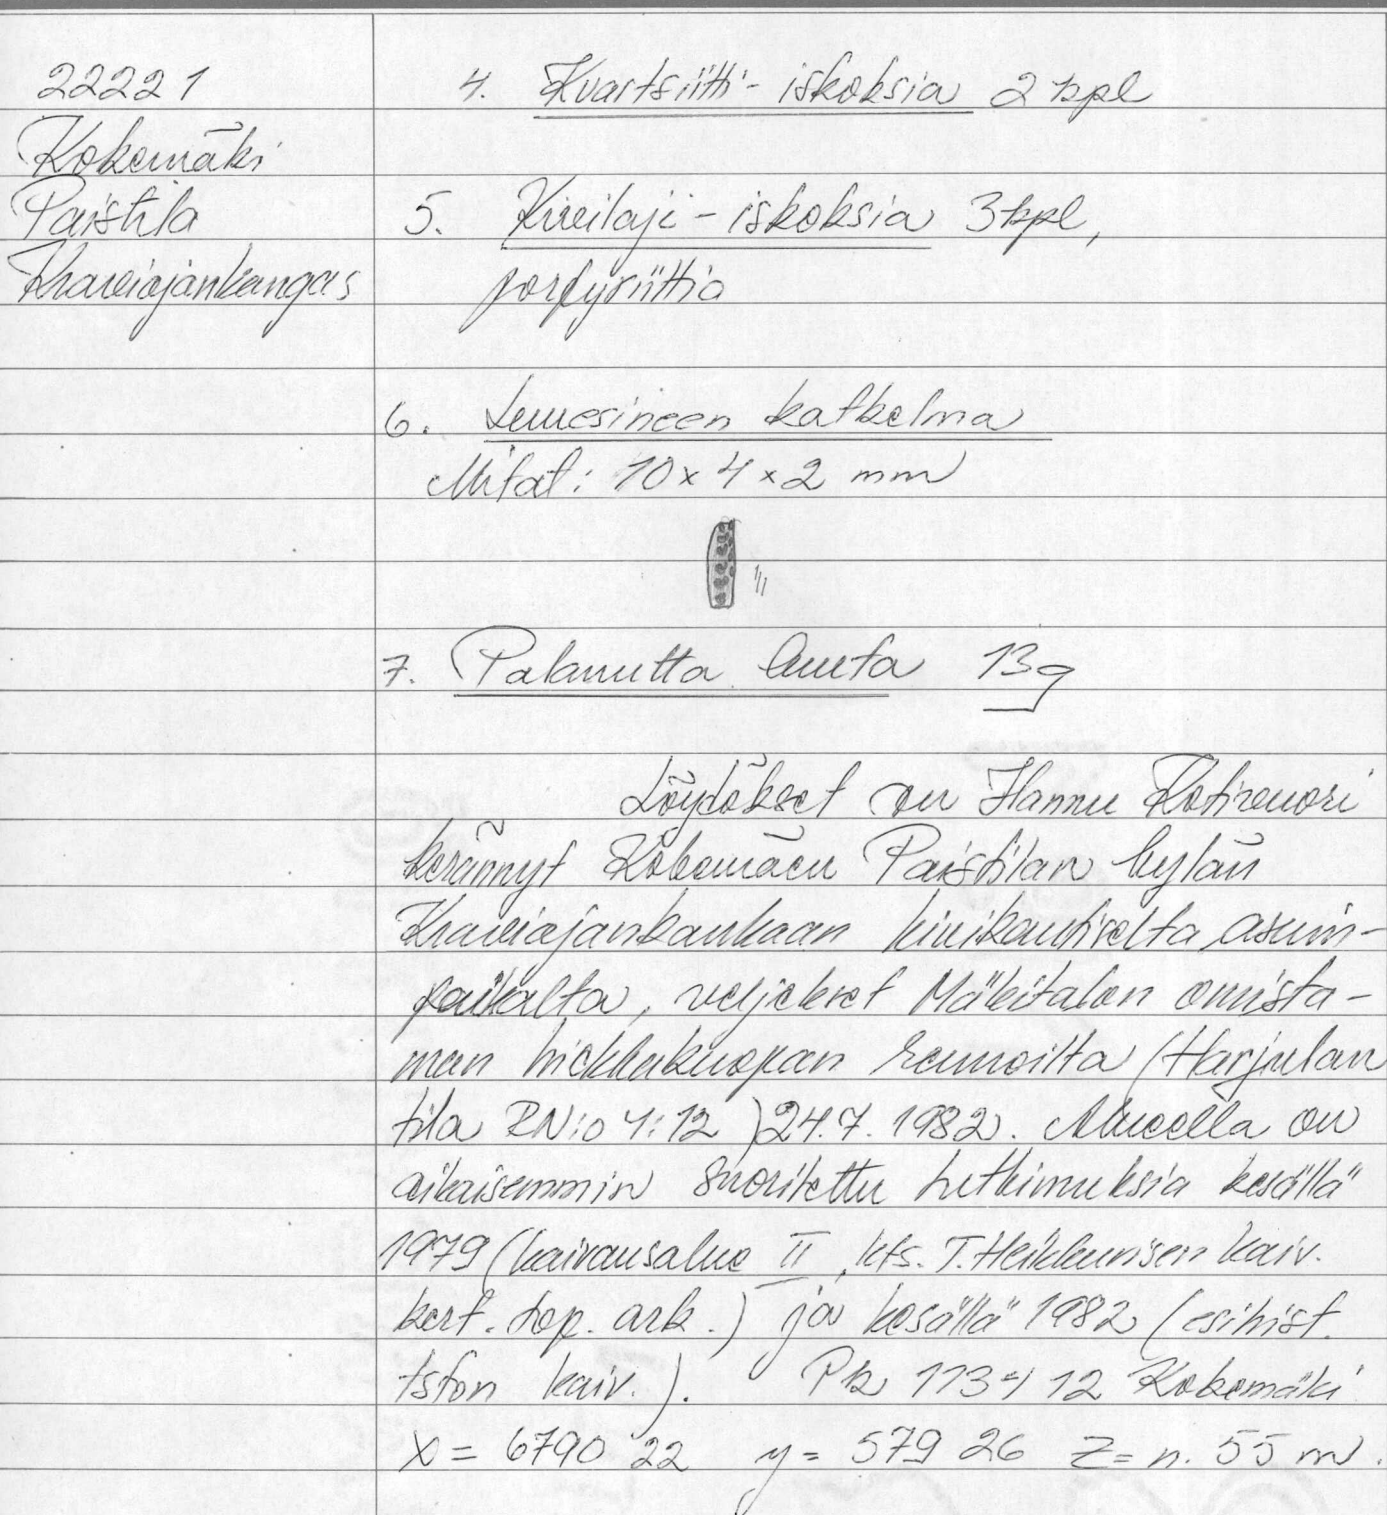 22221
Kokemäki
Paistila
Kraviojankangas
4. Kvartsiitti-iskoksia 2 kpl
5. Kivilaji-iskoksia 3 kpl,
porfyriittia
6. Luuesineen katkelma
Mitat: 10 x 4 x 2 mm
7. Palanutta luuta 13 g
Löydökset on Hannu Kotivuori
kerännyt Kokemäen Paistilan kylän
Kraviojankankaan kivikautiselta asuin-
paikalta, veljekset Mäkitalon omista-
man hiekkakuopan reunoilta (Harjulan
tila RN:o 4:12) 24.7.1982. Alueella on
aikaisemmin suoritettu tutkimuksia kesällä
1979 (kaivausalue II, kts. T. Heikkurisen kaiv.
kert. top. ark.) ja kesällä 1982 (esihist.
tston kaiv.). Pk 1134 12 Kokemäki
x = 6790 22 y = 579 26 z = n. 55 m.